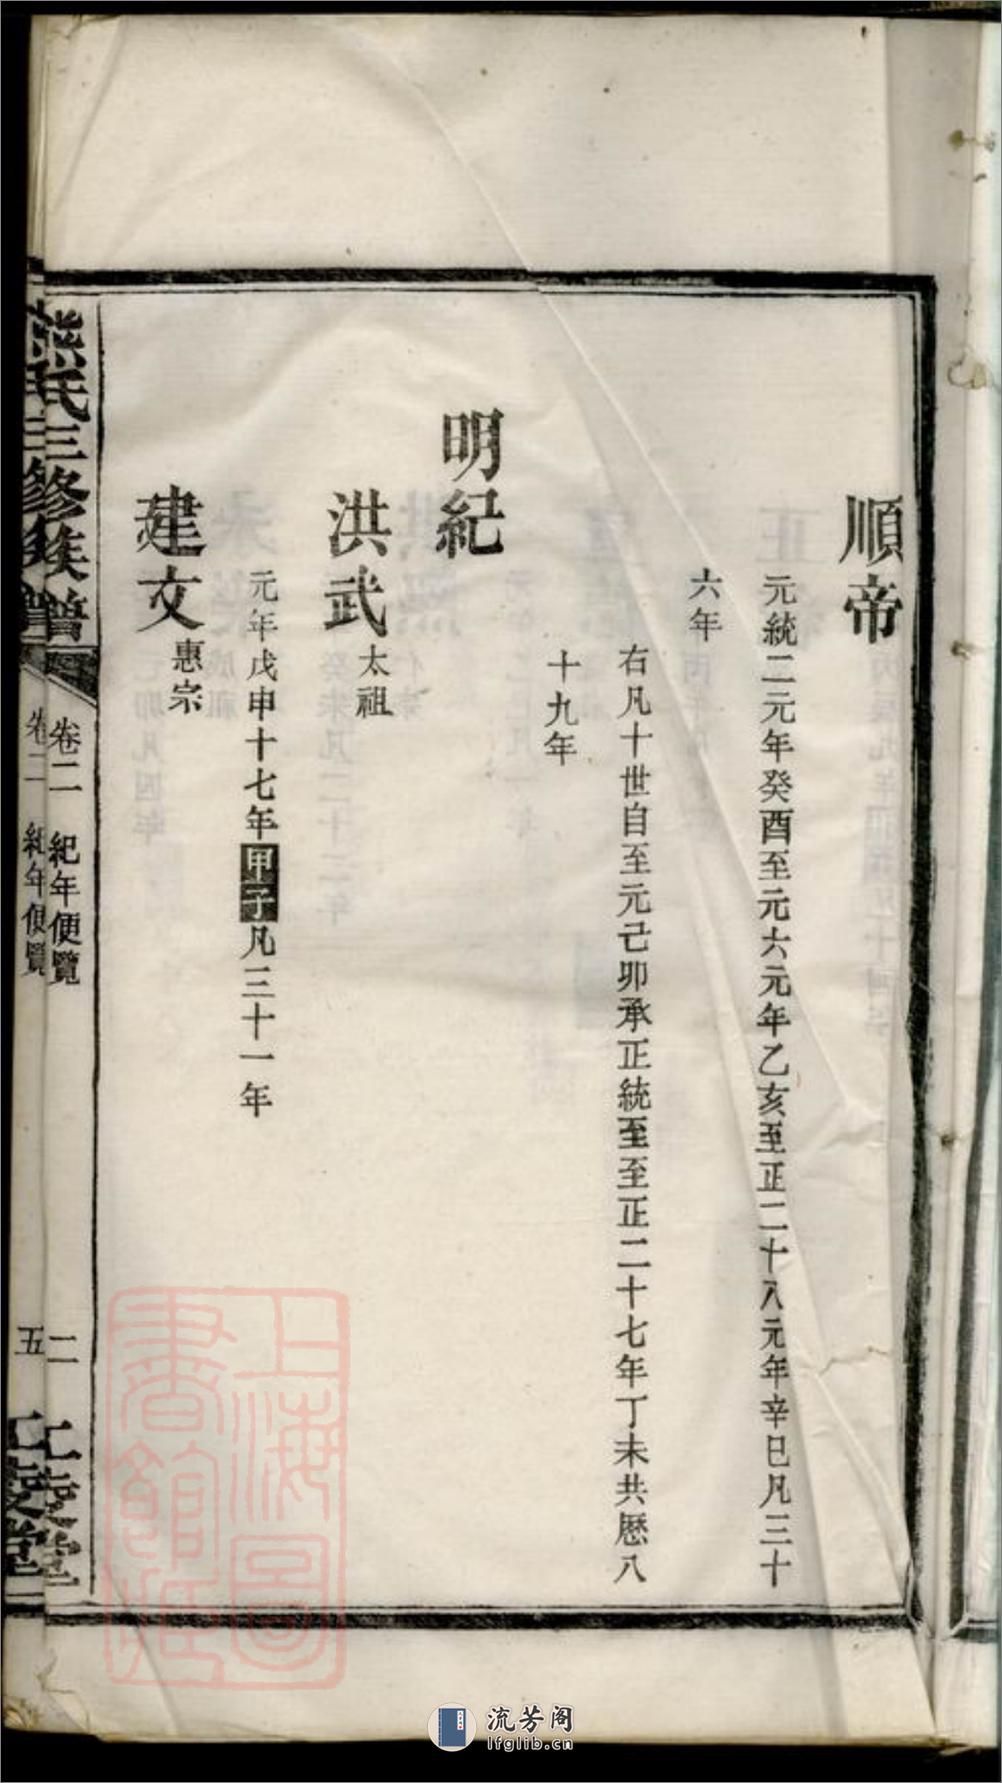 順帝
元統二元年癸酉至元六元年乙亥至正二十八元年辛巳凡三十
六年
右凡十世自至元己卯承正統至至正二十七年丁未共歷八
十九年
明紀
洪武太祖
元年戊申十七年甲子凡三十一年
建文惠宗
熊氏三修族譜
卷二 紀年便覽
二
卷二 紀年便覽
五
上海圖書館藏
流芳阁
lfglib.cn